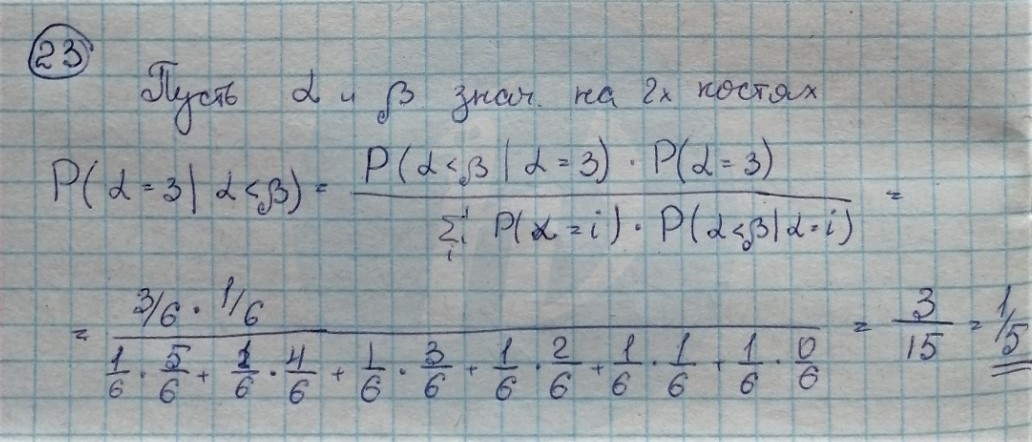 23
Пусть α и β знач. на 2х костях
P(α=3|α<β) = P(α<β|α=3) · P(α=3) / ∑i P(α=i) · P(α<β|α=i) =
= 3/6 · 1/6 / 1/6 · 5/6 + 1/6 · 4/6 + 1/6 · 3/6 + 1/6 · 2/6 + 1/6 · 1/6 + 1/6 · 0/6 = 3/15 = 1/5